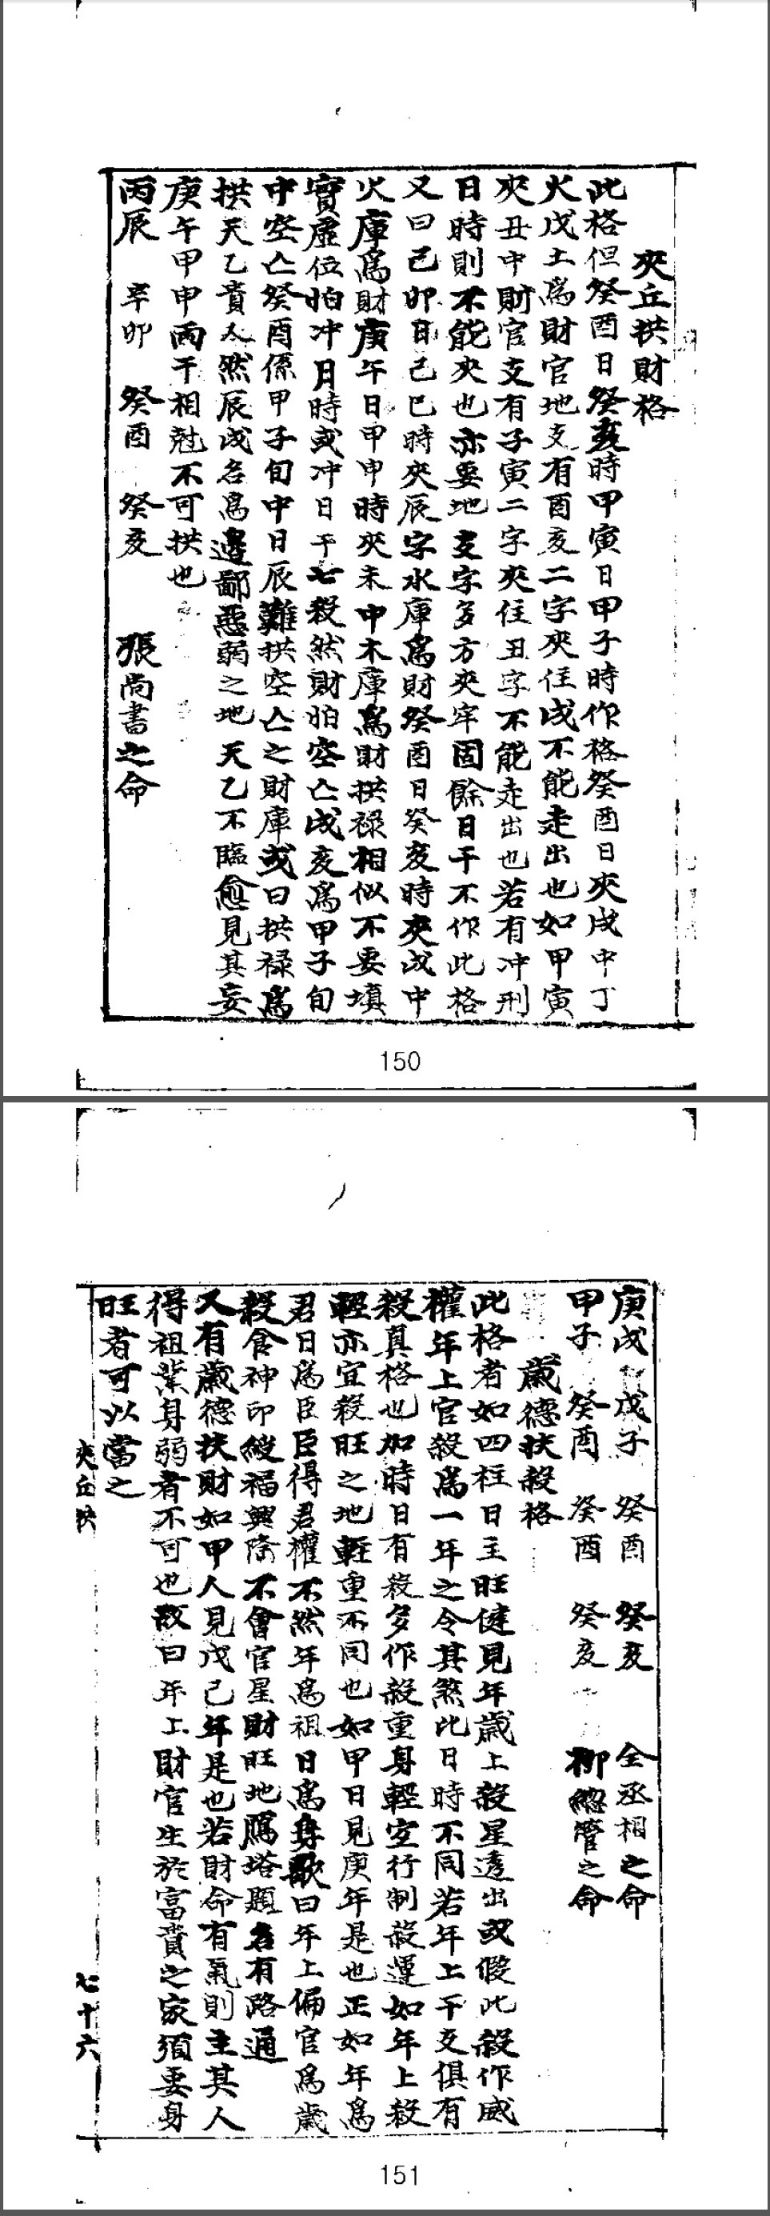 夾丘拱財格
此格但癸酉日癸亥時甲寅日甲子時作格癸酉日夾戌中丁
火戊土爲財官地支有酉亥二字夾住戌不能走出也如甲寅
夾丑中財官支有子寅二字夾住丑字不能走出也若有冲刑
日時則不能夾也亦要地支字多方夾牢固餘日干不作此格
又曰己卯日己巳時夾辰字水庫爲財癸酉日癸亥時夾戌中
火庫爲財庚午日甲申時夾未中木庫爲財拱禄相似不要填
實虛位怕冲月時或冲日干七殺然財怕空亡戌亥爲甲子旬
中空亡癸酉係甲子旬中日辰難拱空亡之財庫或曰拱禄爲
拱天乙貴人然辰戌名爲邊鄙惡弱之地天乙不臨愈見其妄
庚午甲申丙干相尅不可拱也
丙辰 辛卯 癸酉 癸亥 張尚書之命
150
庚戌 戊子 癸酉 癸亥 全丞相之命
甲子 癸酉 癸酉 癸亥 柳總管之命
歲德扶殺格
此格者如四柱日主旺健見年歲上殺星透出或假此殺作威
權年上官殺爲一年之令其煞比日時不同若年上干支俱有
殺真格也加時日有殺多作殺重身輕宜行制殺運如年上殺
輕亦宜殺旺之地輕重不同也如甲日見庚年是也正如年爲
君日爲臣臣得君權不然年爲祖日爲身歌曰年上偏官爲歲
殺食神印綬福興隆不會官星財旺地鴈塔題名有路通
又有歲德扶財如甲人見戊己年是也若財命有氣則主其人
得祖業身弱者不可也故曰年上財官生於富貴之家須要身
旺者可以當之
夾丘拱 七十六
151